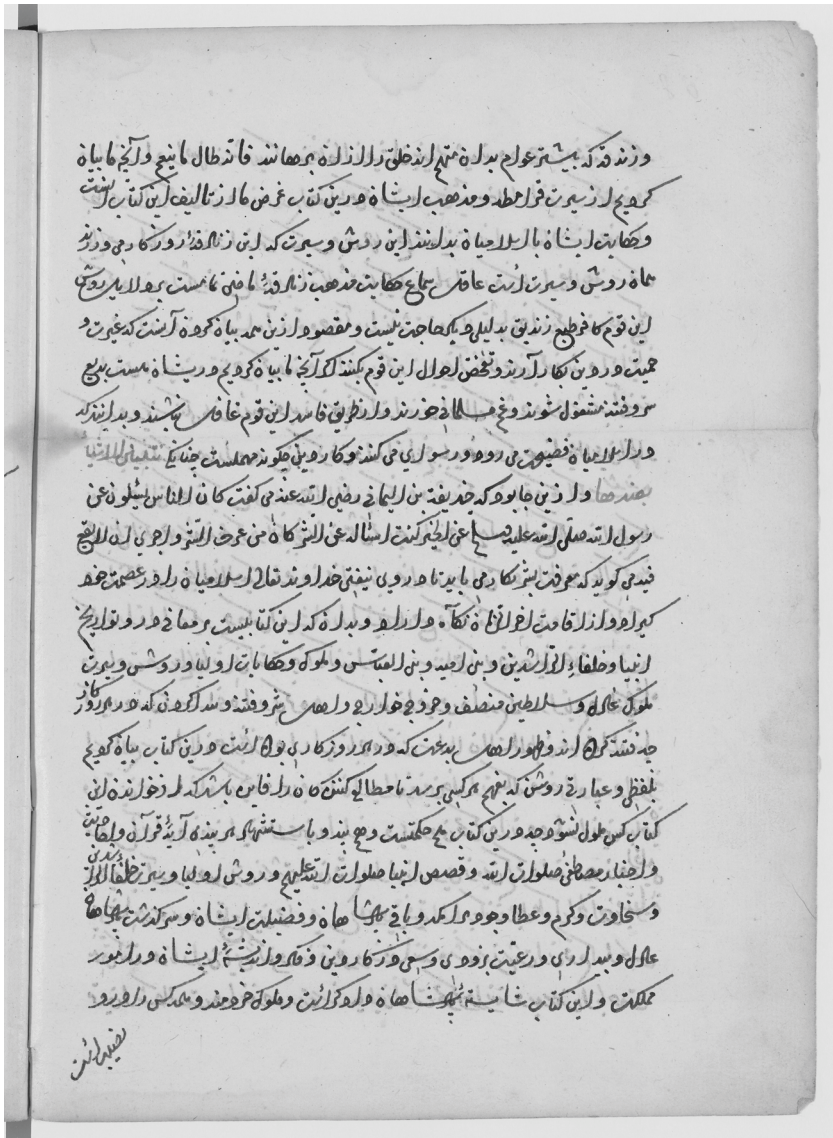 وزندقه که بیشتر عوام بدان متهم اند خلق را ازان برهانند فانه طال ما ینبع وآنچه ما بیان
کردیم از سیرت قرامطه ومذهب ایشان درین کتاب غرض ما از تالیف این کتاب اینست
وحکایت ایشان با اسلامیان بدانند این روش وسیرت که این زنادقه روزکار می ورزند
همان روش وسیرت است عاقل بسماع حکایت مذهب زنادقهٔ ماضی
این قوم کافر طبع زندیق بدلیلی دیکر حاجت نیست ومقصود ازین همه بیان کردن آنست که غیرت و
حمیت در دین بکار آرند وتفحص احوال این قوم بکنند اکر آنچه ما بیان کردیم در ایشان هست بدفع
شر وفتنه مشغول شوند وغم مسلمانی خورند واز طریق فاسد این قوم غافل نباشند وبدانند که
در اسلامیان فضیحت می رود ورسوایی می کنند وکار دین چکونه مهملست چنانکه
بضدها وازین جا بود که حذیفة بن الیمانی رضی الله عنه می کفت کان الناس یسئلون عن
رسول الله صلی الله علیه وسلم عن الخیر کنت اسأله عن الشر کان من عرف الشر واحری ان لا یقع
فیه می کوید که معرفت شر بکار می باید تا در وی نیفتی خداوند تعالی اسلامیان را در عصمت خود
کیراد واز آفات اخر الزمان نکاه داراد وبدان که این کتابیست بر معانی در وتواریخ
انبیا وخلفاء الراشدین وبنی امیه وبنی العباس وملوک وحکایات اولیا وروش وسیرت
ملوک عادل وسلاطین منصف وخروج خوارج واهل شر وفتنه وبیدا کردن که در هر روزکار
چه فتنه کرده اند وظهور اهل بدعت که در هر روزکاری بوده است درین کتاب بیان کردیم
بلفظی وعبارتی روشن که بفهم هر کسی برسد تا مطالعه کننده کان را فایده باشد که از خواندن این
کتاب کس ملول نشود چه درین کتاب هم حکمتست وهم پند وباستشهاد هر پندی آیهٔ قرآن واحادیث
واخبار مصطفی صلوات الله وقصص انبیا صلوات الله علیهم وروش اولیا وسیرت خلفا الراشدین
وسخاوت وکرم وعطا وجود برامکه وباقی پادشاهان وفضیلت ایشان وسرکذشت پادشاهان
عادل وبیداری در رعیت پروری وسعی در کار دین وفکر واندیشهٔ ایشان در امور
مملکت واین کتاب شایستهٔ پادشاهان وامراست وملوک خردمند وهر کس را درو
نصیبه است